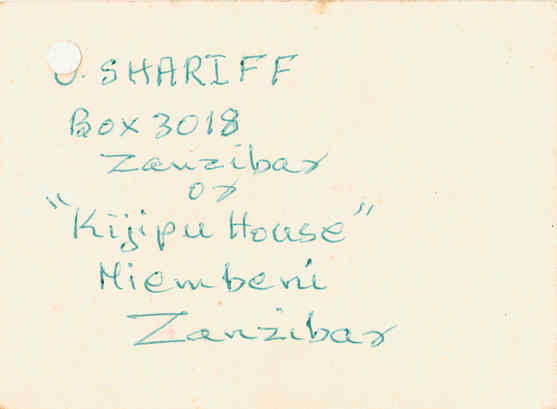 U. SHARIFF
Box 3018
Zanzibar
or
"Kijipu House"
Miembeni
Zanzibar